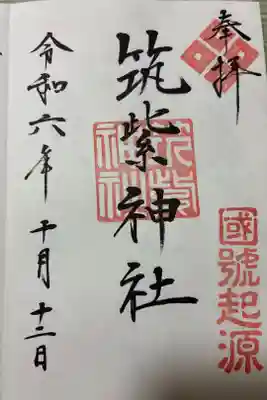 奉拝
國號起源
筑紫神社
筑紫神社
令和六年 十月 十二日